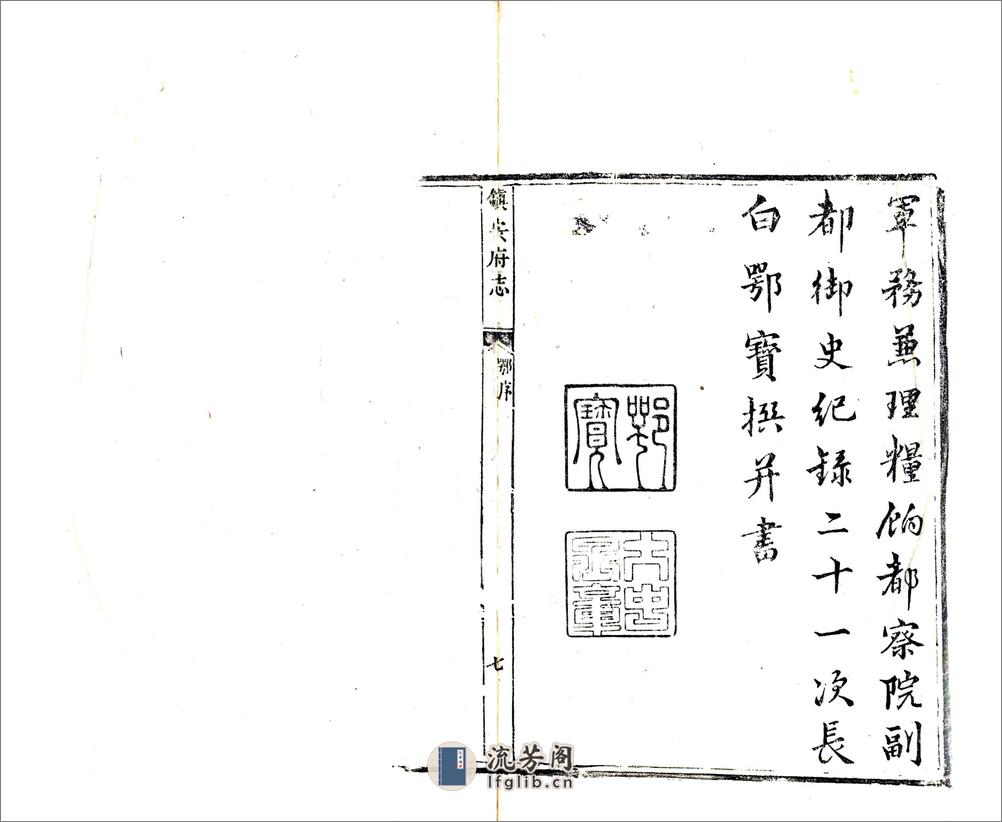 軍務蕫理糧餉都察院副
都御史紀録二十一次長
白鄂寶撰并書
鄂寶
鎮安府志
鄂序
七
流芳阁
lfglib.cn